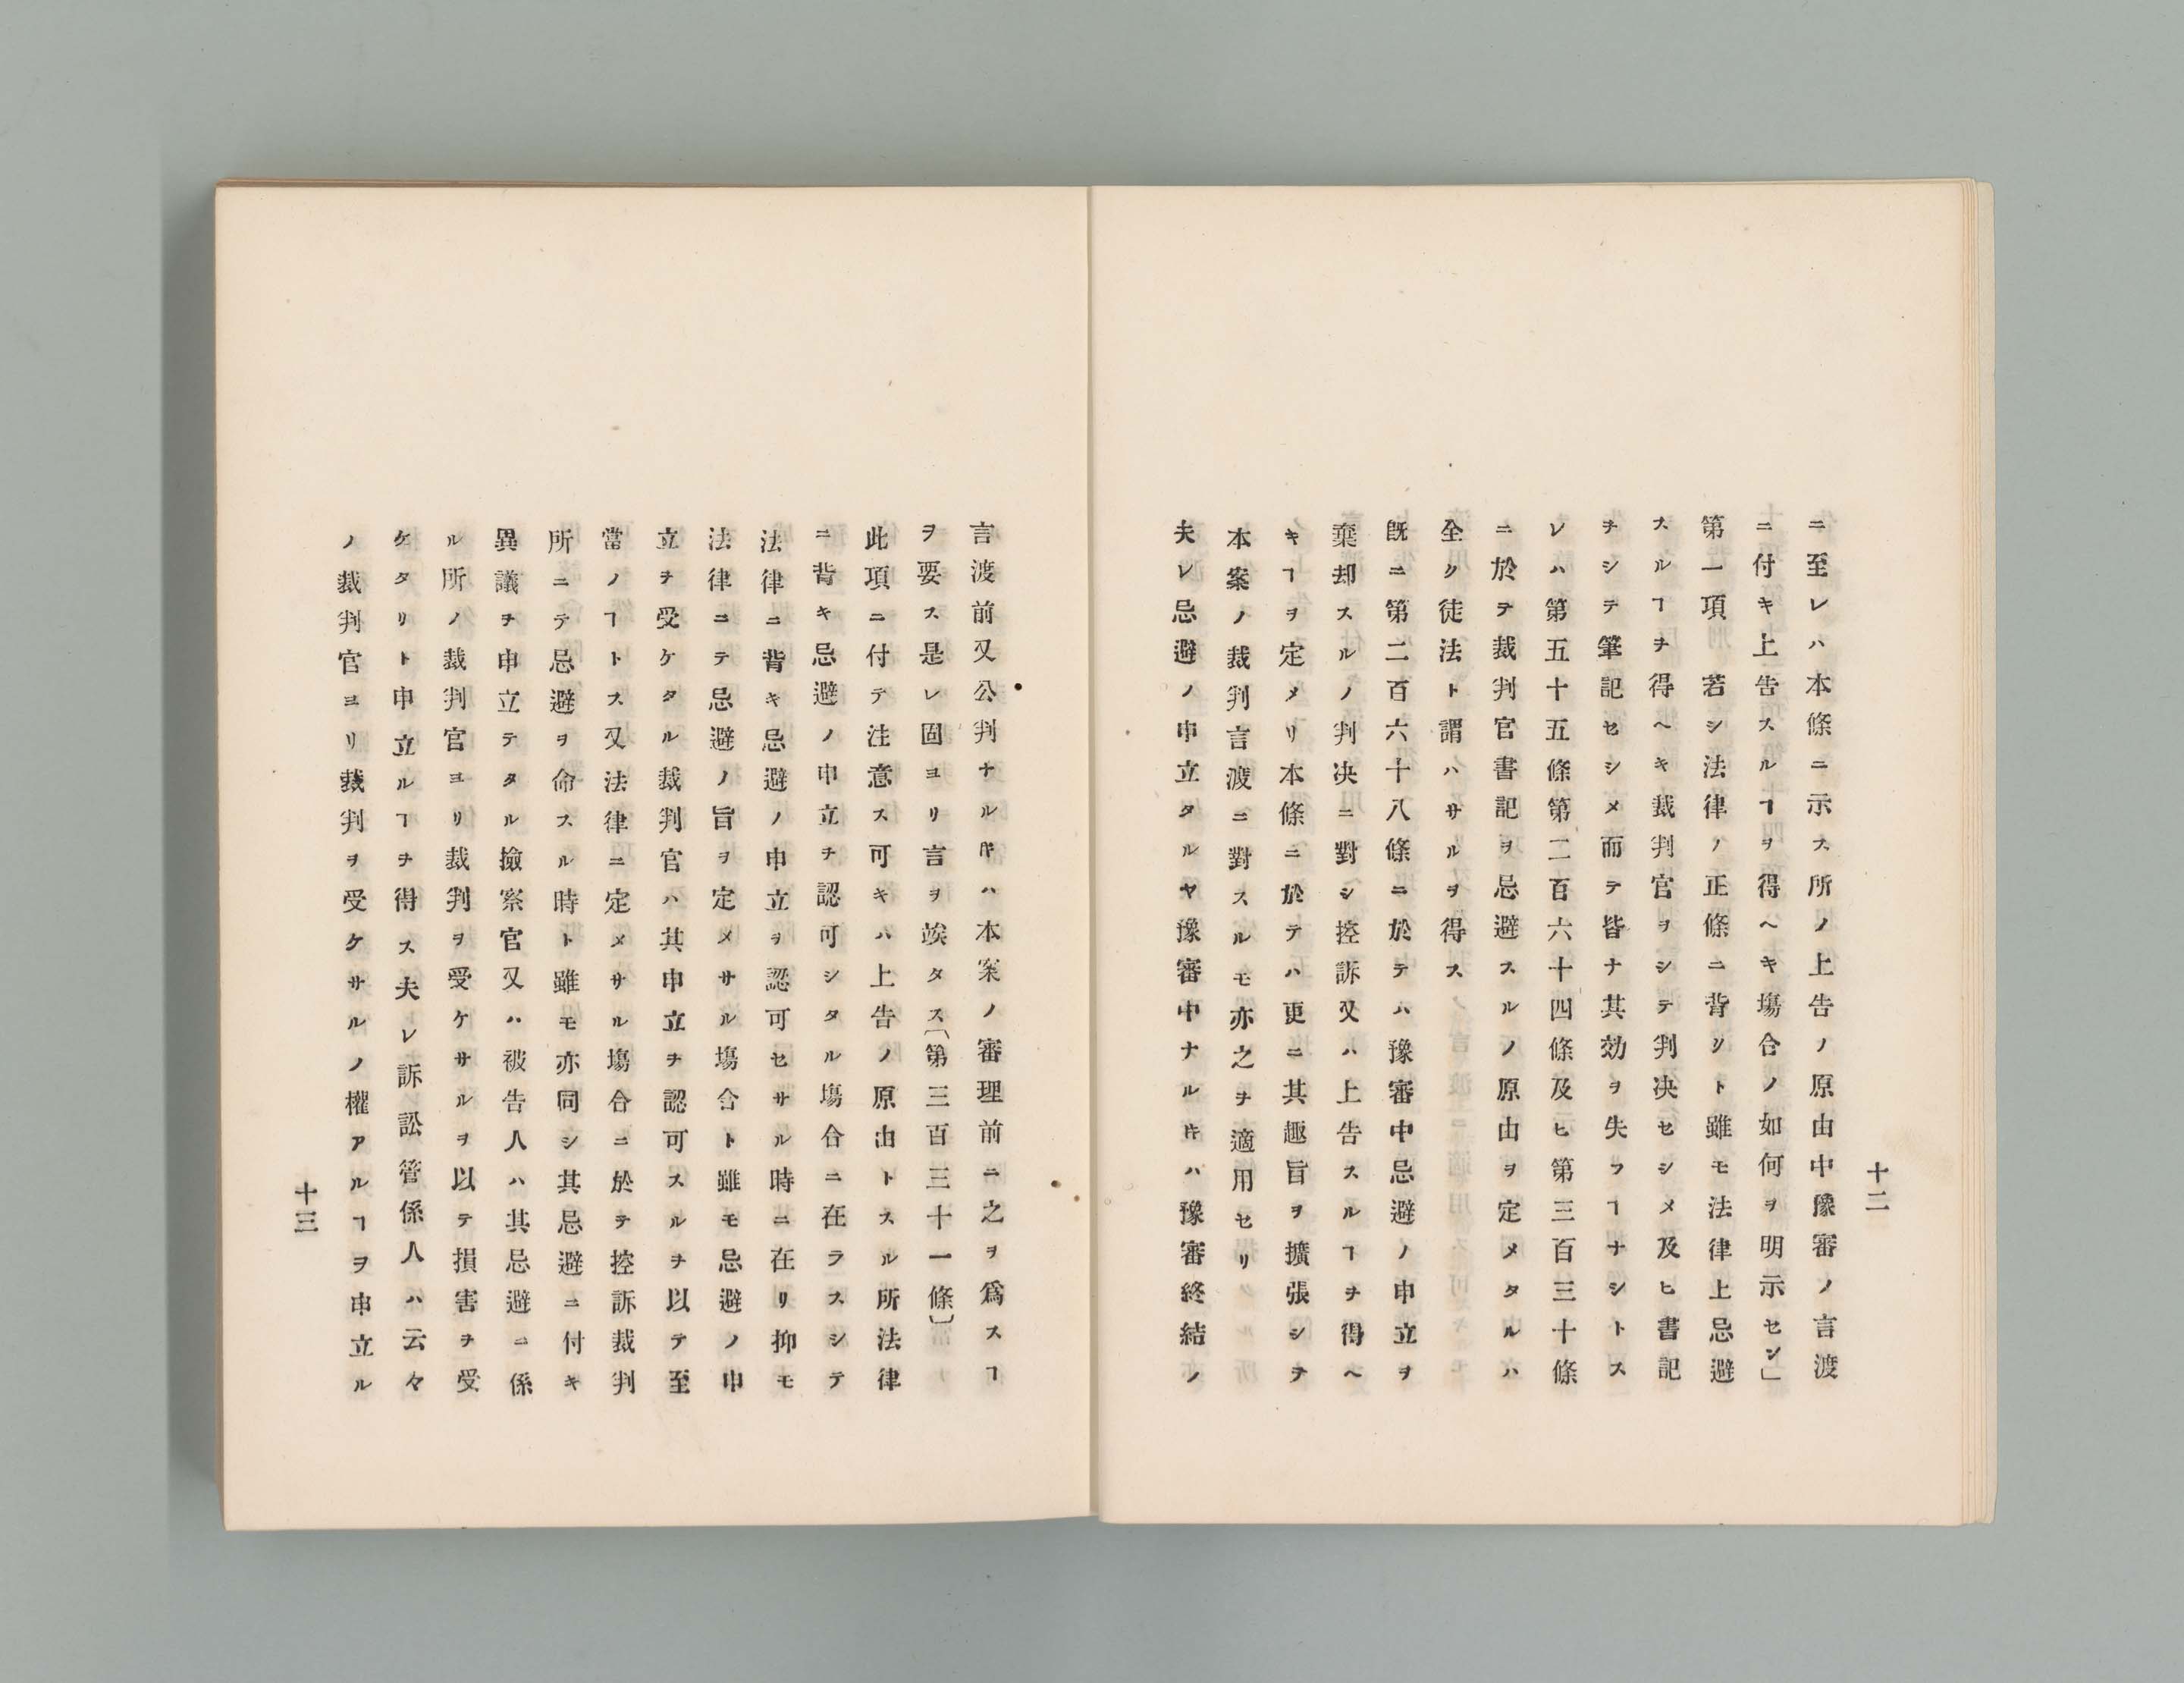 十二
ニ至レハ本條ニ示ス所ノ上告ノ原由中豫審ノ言渡
ニ付キ上告スルヿヲ得ヘキ塲合ノ如何ヲ明示セン」
第一項　若シ法律ノ正條ニ背シト雖モ法律上忌避
スルヿヲ得ヘキ裁判官ヲシテ判决セシメ及ヒ書記
ヲシテ筆記セシメ而テ皆ナ其効ヲ失フヿナシトス
レハ第五十五條第二百六十四條及ヒ第三百三十條
ニ於テ裁判官書記ヲ忌避スルノ原由ヲ定メタルハ
全ク徒法ト謂ハサルヲ得ス
既ニ第二百六十八條ニ於テハ豫審中忌避ノ申立ヲ
棄却スルノ判决ニ對シ控訴又ハ上告スルヿヲ得ヘ
キヿヲ定メリ本條ニ於テハ更ニ其趣旨ヲ擴張シテ
本案ノ裁判言渡ニ對スルモ亦之ヲ適用セリ
夫レ忌避ノ申立タルヤ豫審中ナルキハ豫審終結ノ
言渡前又公判ナルキハ本案ノ審理前ニ之ヲ爲スヿ
ヲ要ス是レ固ヨリ言ヲ竢タス〔第三百三十一條〕
此項ニ付テ注意ス可キハ上告ノ原由トスル所法律
ニ背キ忌避ノ申立ヲ認可シタル塲合ニ在ラスシテ
法律ニ背キ忌避ノ申立ヲ認可セサル時ニ在リ抑モ
法律ニテ忌避ノ旨ヲ定メサル塲合ト雖モ忌避ノ申
立ヲ受ケタル裁判官ハ其申立ヲ認可スルヲ以テ至
當ノヿトス又法律ニ定メサル塲合ニ於テ控訴裁判
所ニテ忌避ヲ命スル時ト雖モ亦同シ其忌避ニ付キ
異議ヲ申立テタル撿察官又ハ被告人ハ其忌避ニ係
ル所ノ裁判官ヨリ裁判ヲ受ケサルヲ以テ損害ヲ受
ケタリト申立ルヿヲ得ス夫レ訴訟管係人ハ云々
ノ裁判官ヨリ裁判ヲ受ケサルノ權アルヿヲ申立ル
十三